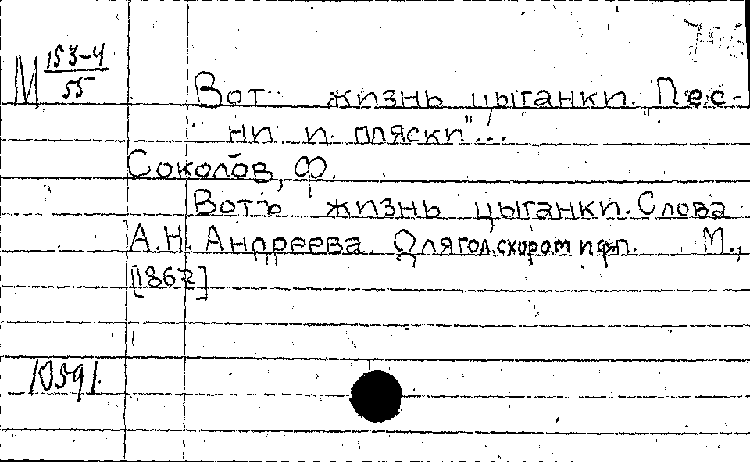 М 153-4/55
Вот жизнь цыганки. Пес-
ни и пляски"...
Соколов, Ф.
Вотъ жизнь цыганки. Слова
А.Н. Андреева. Для гол. с хором и фп. М.,
[1862]
10591.